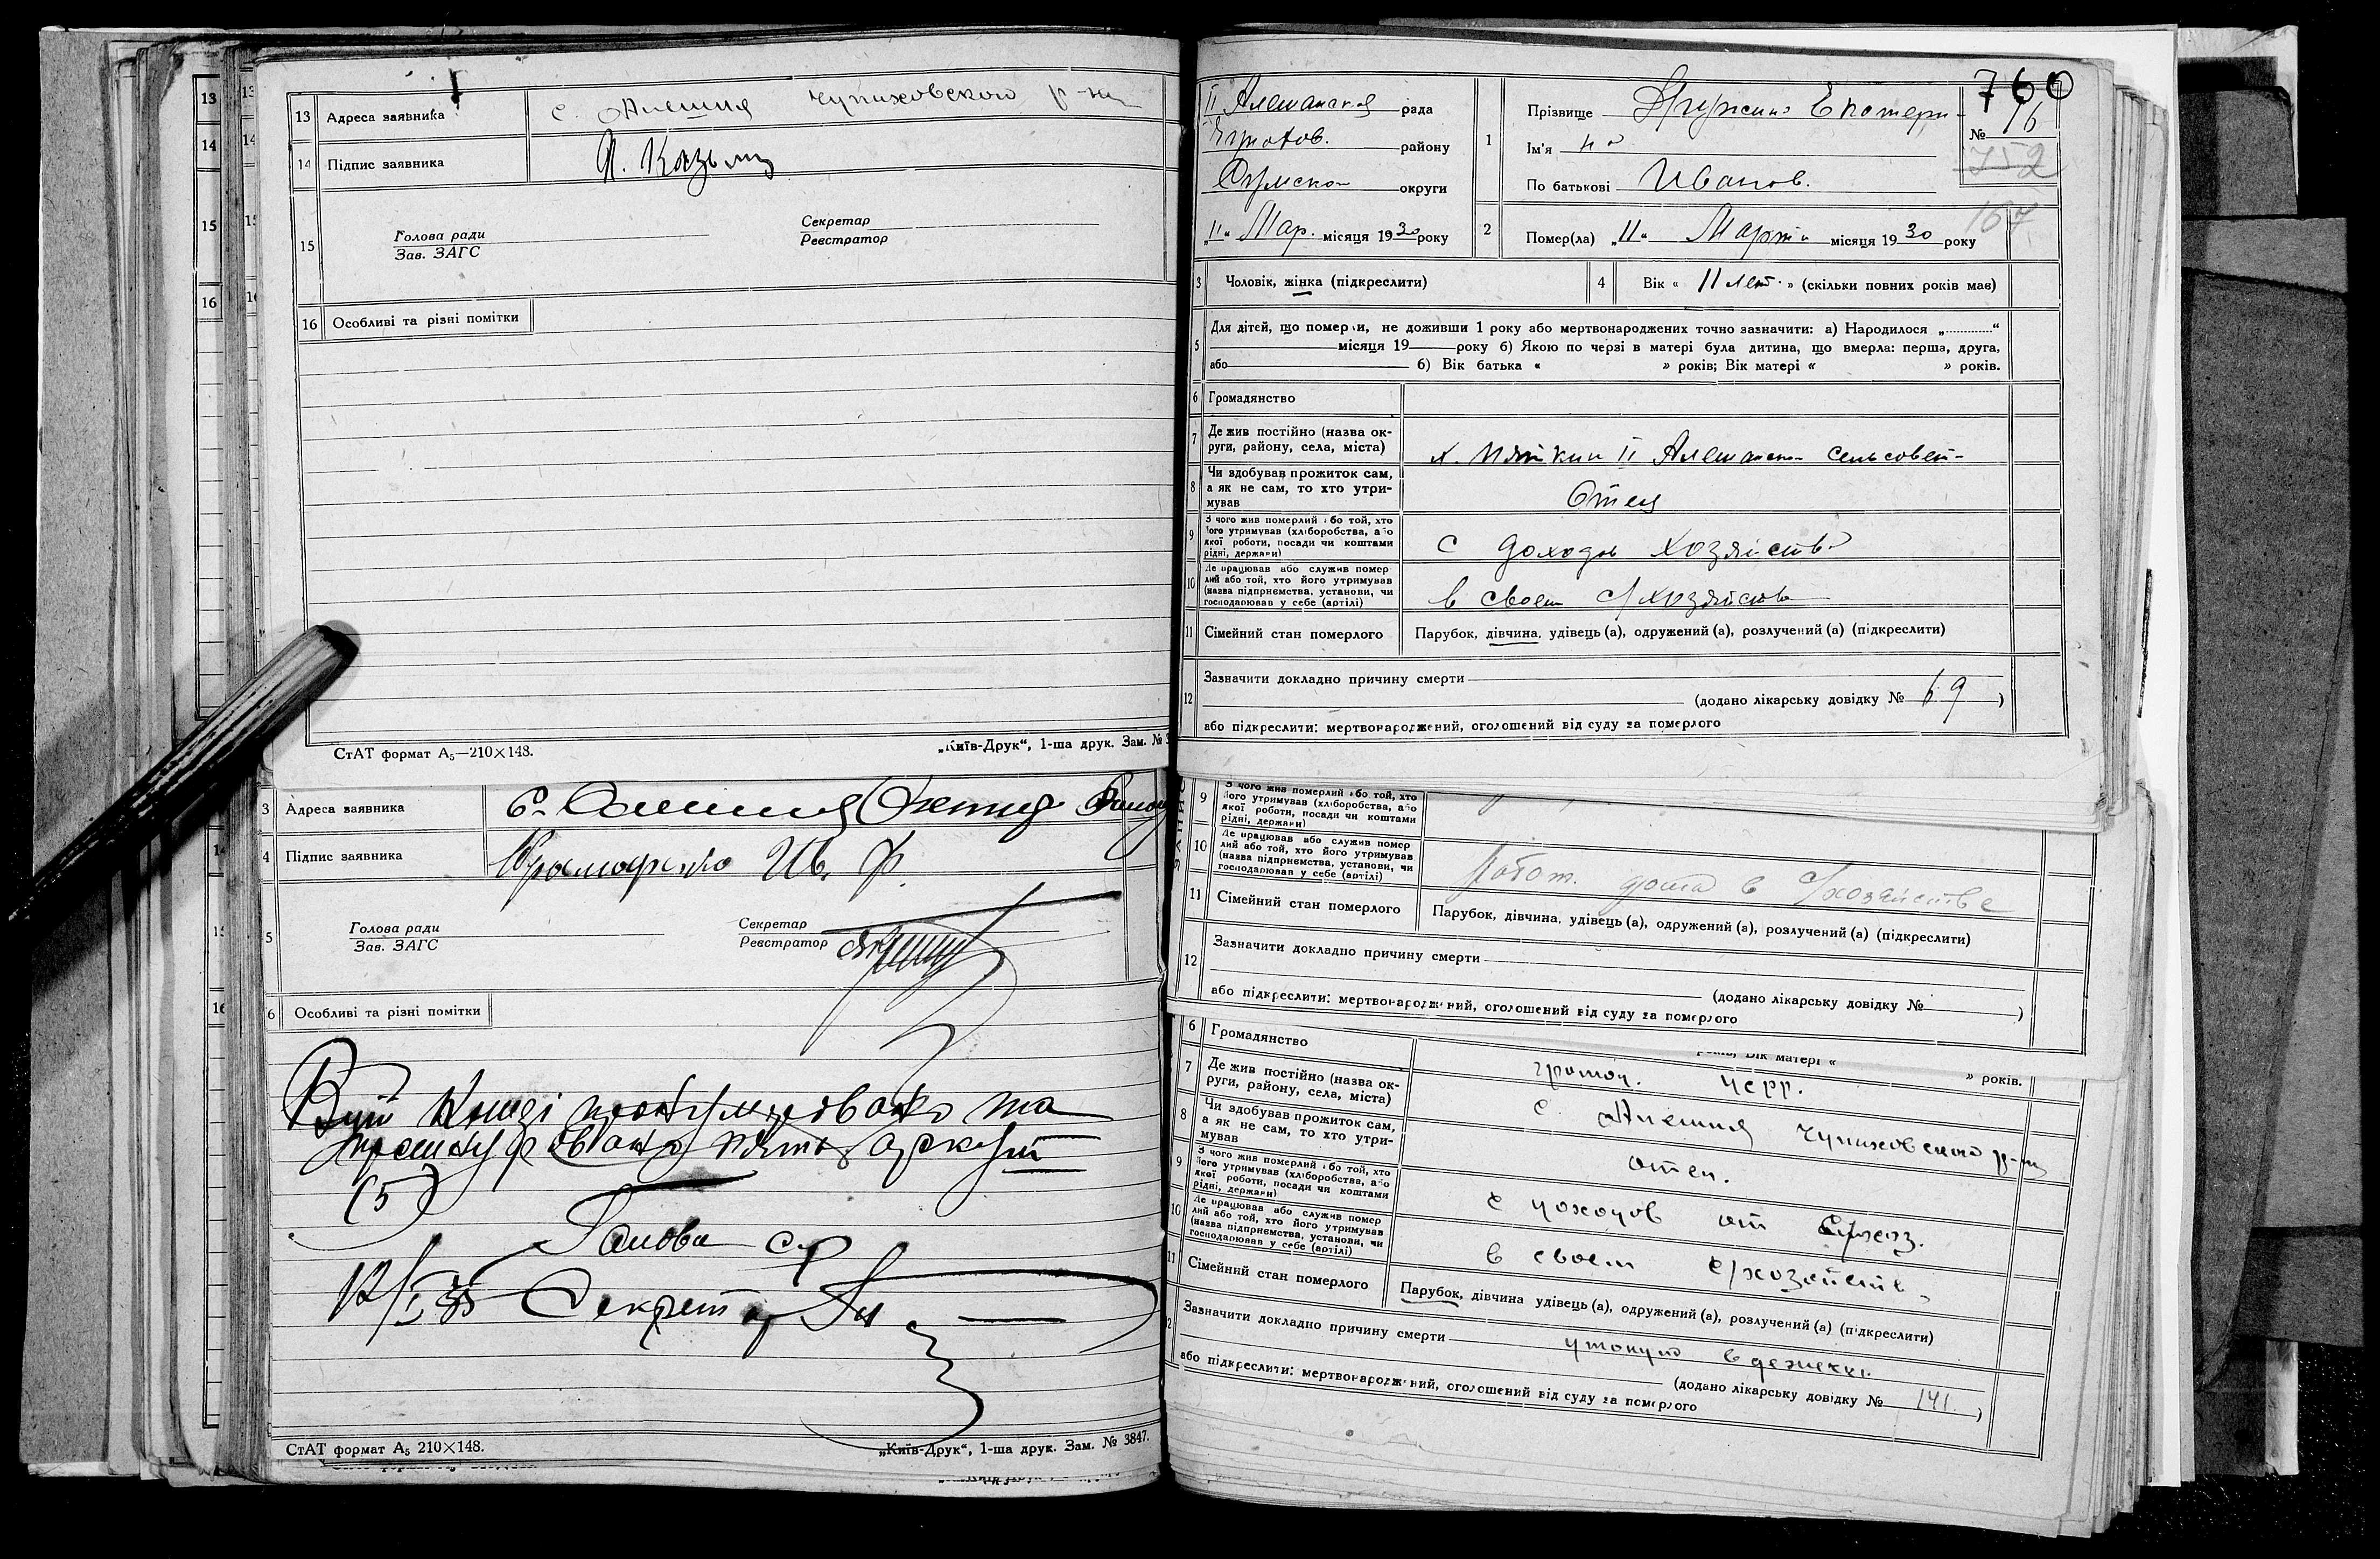 13 Адреса заявника с. Алешня Чупиховского р-на
14 Підпис заявника
15 Голова ради Секретар
Зав. ЗАГС Реєстратор
16 Особливі та різні помітки
СтАТ формат А5—210×148. „Київ-Друк“, 1-ша друк. Зам. № 3
3 Адреса заявника
4 Підпис заявника Ив. Ф.
5 Голова ради Секретар
Зав. ЗАГС Реєстратор
6 Особливі та різні помітки
пронумеровано та
аркушів
(5)
Голова с/р
Секретар
СтАТ формат А5 210×148. „Київ-Друк“, 1-ша друк. Зам. № 3847.
760
II Алешанская рада
району
округи
„11“ Мар. місяця 1930 року
1 Прізвище Екатери-
Ім'я на
По батькові Иванов.
№ 16
752
167
2 Помер(ла) „11“ Марта місяця 1930 року
3 Чоловік, жінка (підкреслити) 4 Вік « 11 лет. » (скільки повних років має)
5 Для дітей, що померли, не доживши 1 року або мертвонароджених точно зазначити: а) Народилося „..............“
місяця 19 року б) Якою по черзі в матері була дитина, що вмерла: перша, друга,
або б) Вік батька « » років; Вік матері « » років.
6 Громадянство
7 Де жив постійно (назва ок-
руги, району, села, міста) х. II Алешанск сельсовет-
8 Чи здобував прожиток сам,
а як не сам, то хто утри-
мував Отец
9 З чого жив померлий або той, хто
його утримував (хліборобства, або
якої роботи, посади чи коштами
рідні, держави) с дохода хозяйства
10 Де працював або служив помер
лий або той, хто його утримував
(назва підприємства, установи, чи
господарював у себе (артілі) в своем с/хозяйстве
11 Сімейний стан померлого Парубок, дівчина, удівець(а), одружений(а), розлучений(а) (підкреслити)
12 Зазначити докладно причину смерти
(додано лікарську довідку № 69 )
або підкреслити: мертвонароджений, оголошений від суду за померлого
9 З чого жив померлий або той, хто
його утримував (хліборобства, або
якої роботи, посади чи коштами
рідні, держави)
10 Де працював або служив помер
лий або той, хто його утримував
(назва підприємства, установи, чи
господарював у себе (артілі) Работ. дома в с/хозяйстве
11 Сімейний стан померлого Парубок, дівчина, удівець(а), одружений(а), розлучений(а) (підкреслити)
12 Зазначити докладно причину смерти
(додано лікарську довідку № )
або підкреслити: мертвонароджений, оголошений від суду за померлого
років; Вік матері « » років.
6 Громадянство
7 Де жив постійно (назва ок-
руги, району, села, міста) с. Алешня Чупиховского р-на
8 Чи здобував прожиток сам,
а як не сам, то хто утри-
мував отец.
9 З чого жив померлий або той, хто
його утримував (хліборобства, або
якої роботи, посади чи коштами
рідні, держави) с доходов от с/хоз.
10 Де працював або служив помер
лий або той, хто його утримував
(назва підприємства, установи, чи
господарював у себе (артілі) в своем с/хозяйств.
11 Сімейний стан померлого Парубок, дівчина удівець(а), одружений(а), розлучений(а) (підкреслити)
Зазначити докладно причину смерти утонул в
(додано лікарську довідку № 141. )
або підкреслити: мертвонароджений, оголошений від суду за померлого